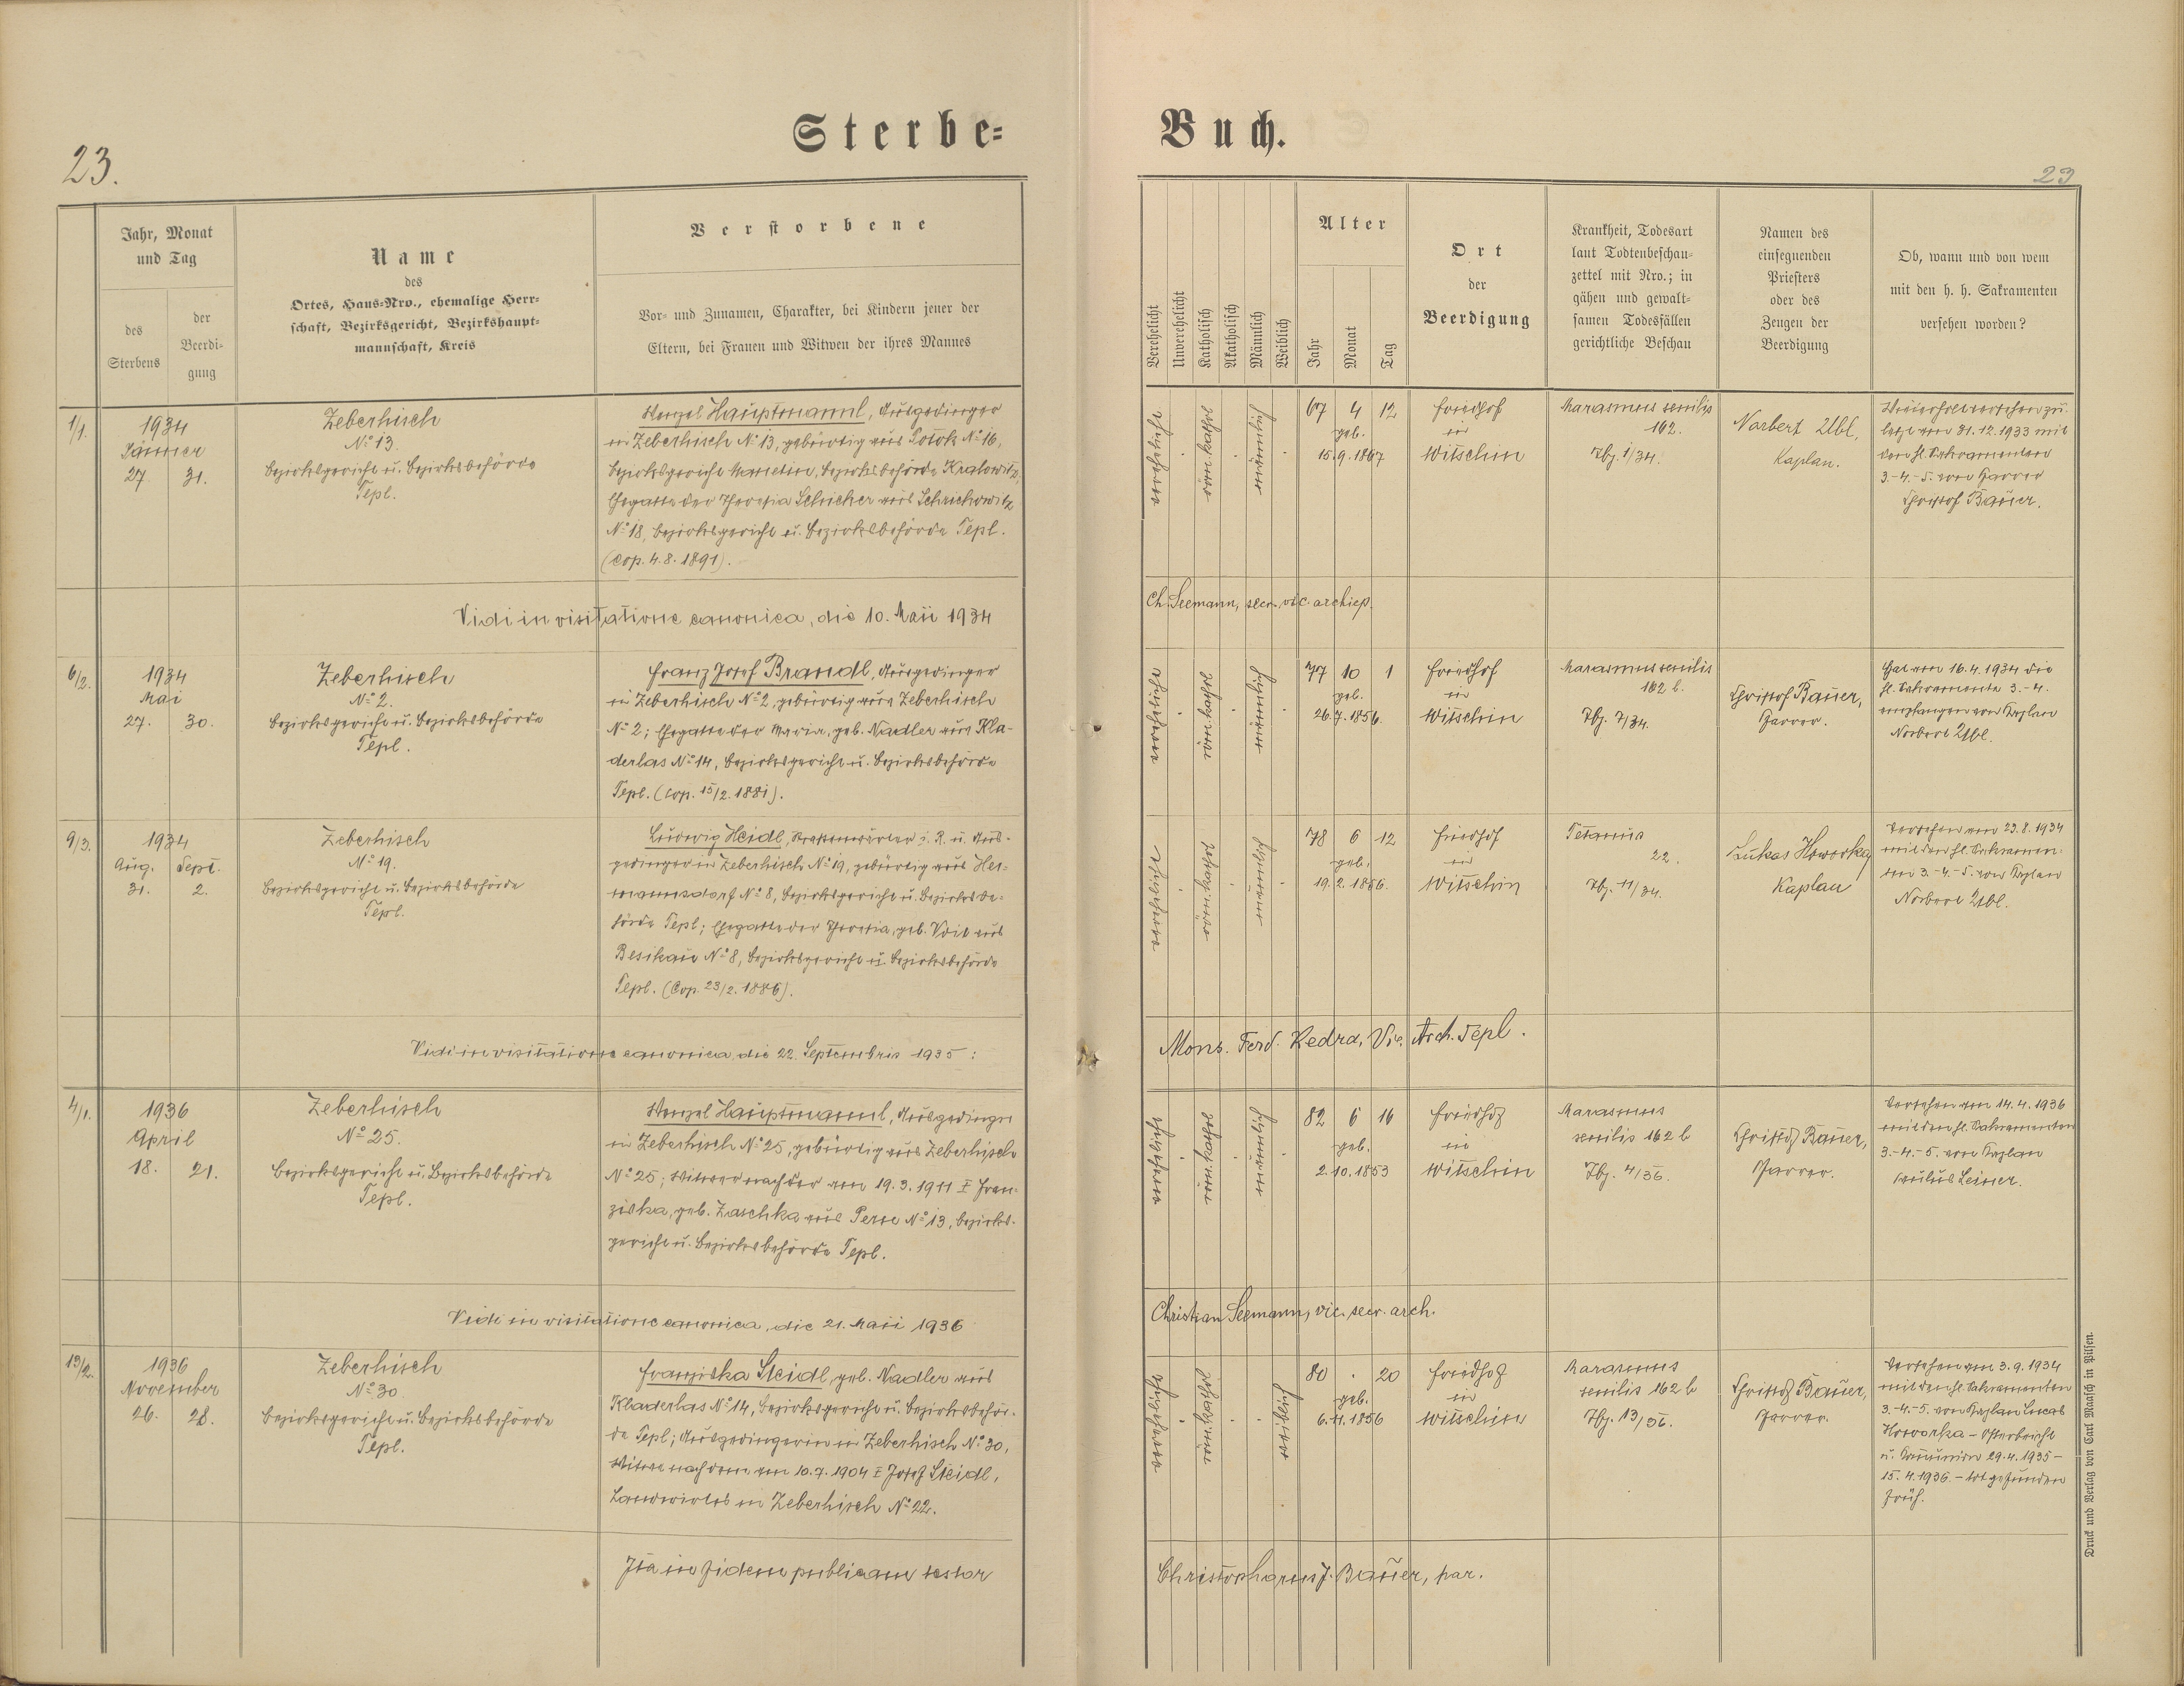 23.
Sterbe-
Jahr, Monat
und Tag
des
Sterbens
der
Beerdi-
gung
Name
des
Ortes, Haus-Nro., ehemalige Herr-
schaft, Bezirksgericht, Bezirkshaupt-
mannschaft, Kreis
Verstorbene
Vor- und Zunamen, Charakter, bei Kindern jener der
Eltern, bei Frauen und Witwen der ihres Mannes
1/1.
1934
Jänner
27. 31.
Zeberhisch
No 13.
Bezirksgericht u. Bezirksbehörde
Tepl.
Wenzel Hauptmannl, Ausgedinger
in Zeberhisch No 13, gebürtig aus Potok No 16,
Bezirksgericht Manetin, Bezirksbehörde Kralowitz,
Ehegatte der Theresia Schicker aus Schrikowitz
No 18, Bezirksgericht u. Bezirksbehörde Tepl.
(Cop. 4.8.1891).
Vidi in visitatione canonica, die 10. Maii 1934
6/2.
1934
Mai
27. 30.
Zeberhisch
No 2.
Bezirksgericht u. Bezirksbehörde
Tepl.
Franz Josef Brandl, Ausgedinger
in Zeberhisch No 2, gebürtig aus Zeberhisch
No 2; Ehegatte der Maria, geb. Nadler aus Kla-
derlas No 14, Bezirksgericht u. Bezirksbehörde
Tepl. (Cop. 15/2. 1881).
9/3.
1934
Aug. Sept.
31. 2.
Zeberhisch
No 19.
Bezirksgericht u. Bezirksbehörde
Tepl.
Ludwig Heidl, i. R. u. Aus-
gedinger in Zeberhisch No 19, gebürtig aus Her-
mannsdorf No 8, Bezirksgericht u. Bezirksbe-
hörde Tepl; Ehegatte der Theresia, geb. Voit aus
Besikau No 8, Bezirksgericht u. Bezirksbehörde
Tepl. (Cop. 23/2. 1886).
Vidi in visitatione canonica die 22. Septembris 1935 :
4/1.
1936
April
18. 21.
Zeberhisch
No 25.
Bezirksgericht u. Bezirksbehörde
Tepl.
Wenzel Hauptmannl, Ausgedinger
in Zeberhisch No 25, gebürtig aus Zeberhisch
No 25; Witwer nach der am 19.3.1911 † Fran-
ziska, geb. Zaschka aus Pern No 13, Bezirks-
gericht u. Bezirksbehörde Tepl.
Vidi in visitatione canonica, die 21. Maii 1936
13/2.
1936
November
26. 28.
Zeberhisch
No 30.
Bezirksgericht u. Bezirksbehörde
Tepl.
Franziska Steidl, geb. Nadler aus
Kladerlas No 14, Bezirksgericht u. Bezirksbehör-
de Tepl; Ausgedingerin in Zeberhisch No 30,
Witwe nach dem am 10.7.1904 † Josef Steidl,
Landwirtes in Zeberhisch No 22.
Ita in fidem publicam testor
Buch.
23
Verehelicht
Unverehelicht
Katholisch
Akatholisch
Männlich
Weiblich
Alter
Jahr
Monat
Tag
Ort
der
Beerdigung
Krankheit, Todesart
laut Todtenbeschau-
zettel mit Nro.; in
gähen und gewalt-
samen Todesfällen
gerichtliche Beschau
Namen des
einsegnenden
Priesters
oder des
Zeugen der
Beerdigung
Ob, wann und von wem
mit den h. h. Sakramenten
versehen worden?
verehelicht
röm. kathol.
männlich
67 4 12
geb.
15.9.1867
Friedhof
in
Witschin
Marasmus senilis
162.
Tbz. 1/34.
Norbert Uibl,
Kaplan.
Wiederholt versehen zu-
letzt am 31.12.1933 mit
den hl. Sakramenten
3.-4.-5. vom Pfarrer
Christof Bauer.
Ch. Seemann, secr. vic. archiep.
verehelicht
röm. kathol.
männlich
77 10 1
geb.
26.7.1856.
Friedhof
in
Witschin
Marasmus senilis
162 b.
Tbz. 7/34.
Christof Bauer,
Pfarrer.
Hat am 16.4.1934 die
hl. Sakramente 3.-4.
empfangen von Kaplan
Norbert Uibl.
verehelicht
röm. kathol.
männlich
78 6 12
geb.
19.2.1856.
Friedhof
in
Witschin
Tetanus
22.
Tbz. 11/34.
Lukas Howorka,
Kaplan
Versehen am 23.8.1934
mit den hl. Sakramen-
ten 3.-4.-5. von Kaplan
Norbert Uibl.
Mons. Ferd. Kedra, Vic. Arch. Tepl.
verehelicht
röm. kathol.
männlich
82 6 16
geb.
2.10.1853
Friedhof
in
Witschin
Marasmus
senilis 162 b
Tbz. 4/36.
Christof Bauer,
Pfarrer.
Versehen am 14.4.1936
mit den hl. Sakramenten
3.-4.-5. von Kaplan
Paulus Leiner.
Christian Seemann, vic. secr. arch.
verehelicht
röm. kathol.
weiblich
80 . 20
geb.
6.11.1856
Friedhof
in
Witschin
Marasmus
senilis 162 b
Tbz. 13/36.
Christof Bauer,
Pfarrer.
Versehen am 3.9.1934
mit den hl. Sakramenten
3.-4.-5. von Kaplan Lucas
Howorka - Osterbeicht
u. Kommunion 29.4.1935-
15.4.1936. - tot gefunden
früh.
Christophorus J. Bauer, par.
Druck und Verlag von Carl Maasch in Pilsen.